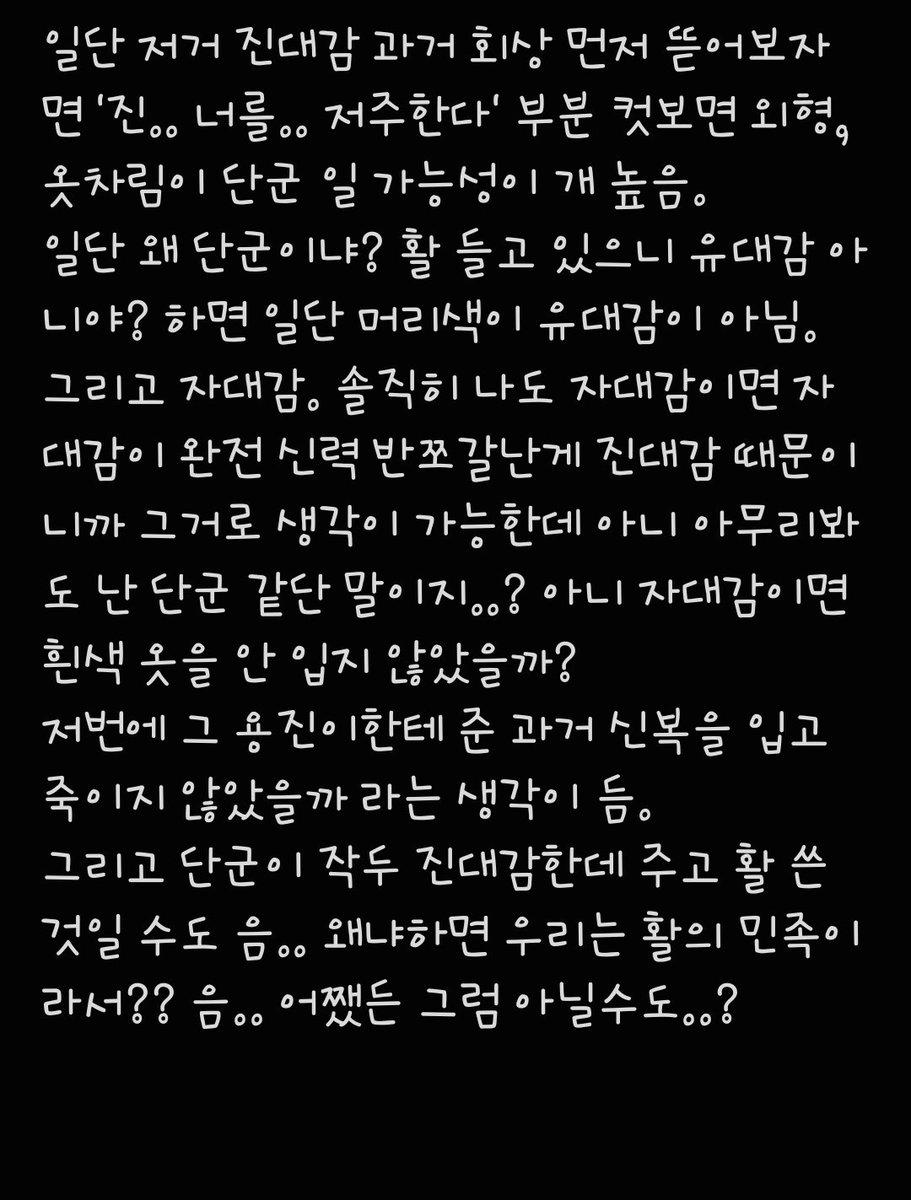 일단 저거 진대감 과거 회상 먼저 뜯어보자
면 '진.. 너를.. 저주한다' 부분 컷보면 외형,
옷차림이 단군 일 가능성이 개 높음.
일단 왜 단군이냐? 활 들고 있으니 유대감 아
니야? 하면 일단 머리색이 유대감이 아님.
그리고 자대감. 솔직히 나도 자대감이면 자
대감이 완전 신력 반쪼갈난게 진대감 때문이
니까 그거로 생각이 가능한데 아니 아무리봐
도 난 단군 같단 말이지..? 아니 자대감이면
흰색 옷을 안 입지 않았을까?
저번에 그 용진이한테 준 과거 신복을 입고
죽이지 않았을까 라는 생각이 듬.
그리고 단군이 작두 진대감한데 주고 활 쓴
것일 수도 음.. 왜냐하면 우리는 활의 민족이
라서?? 음.. 어쨌든 그럼 아닐수도..?